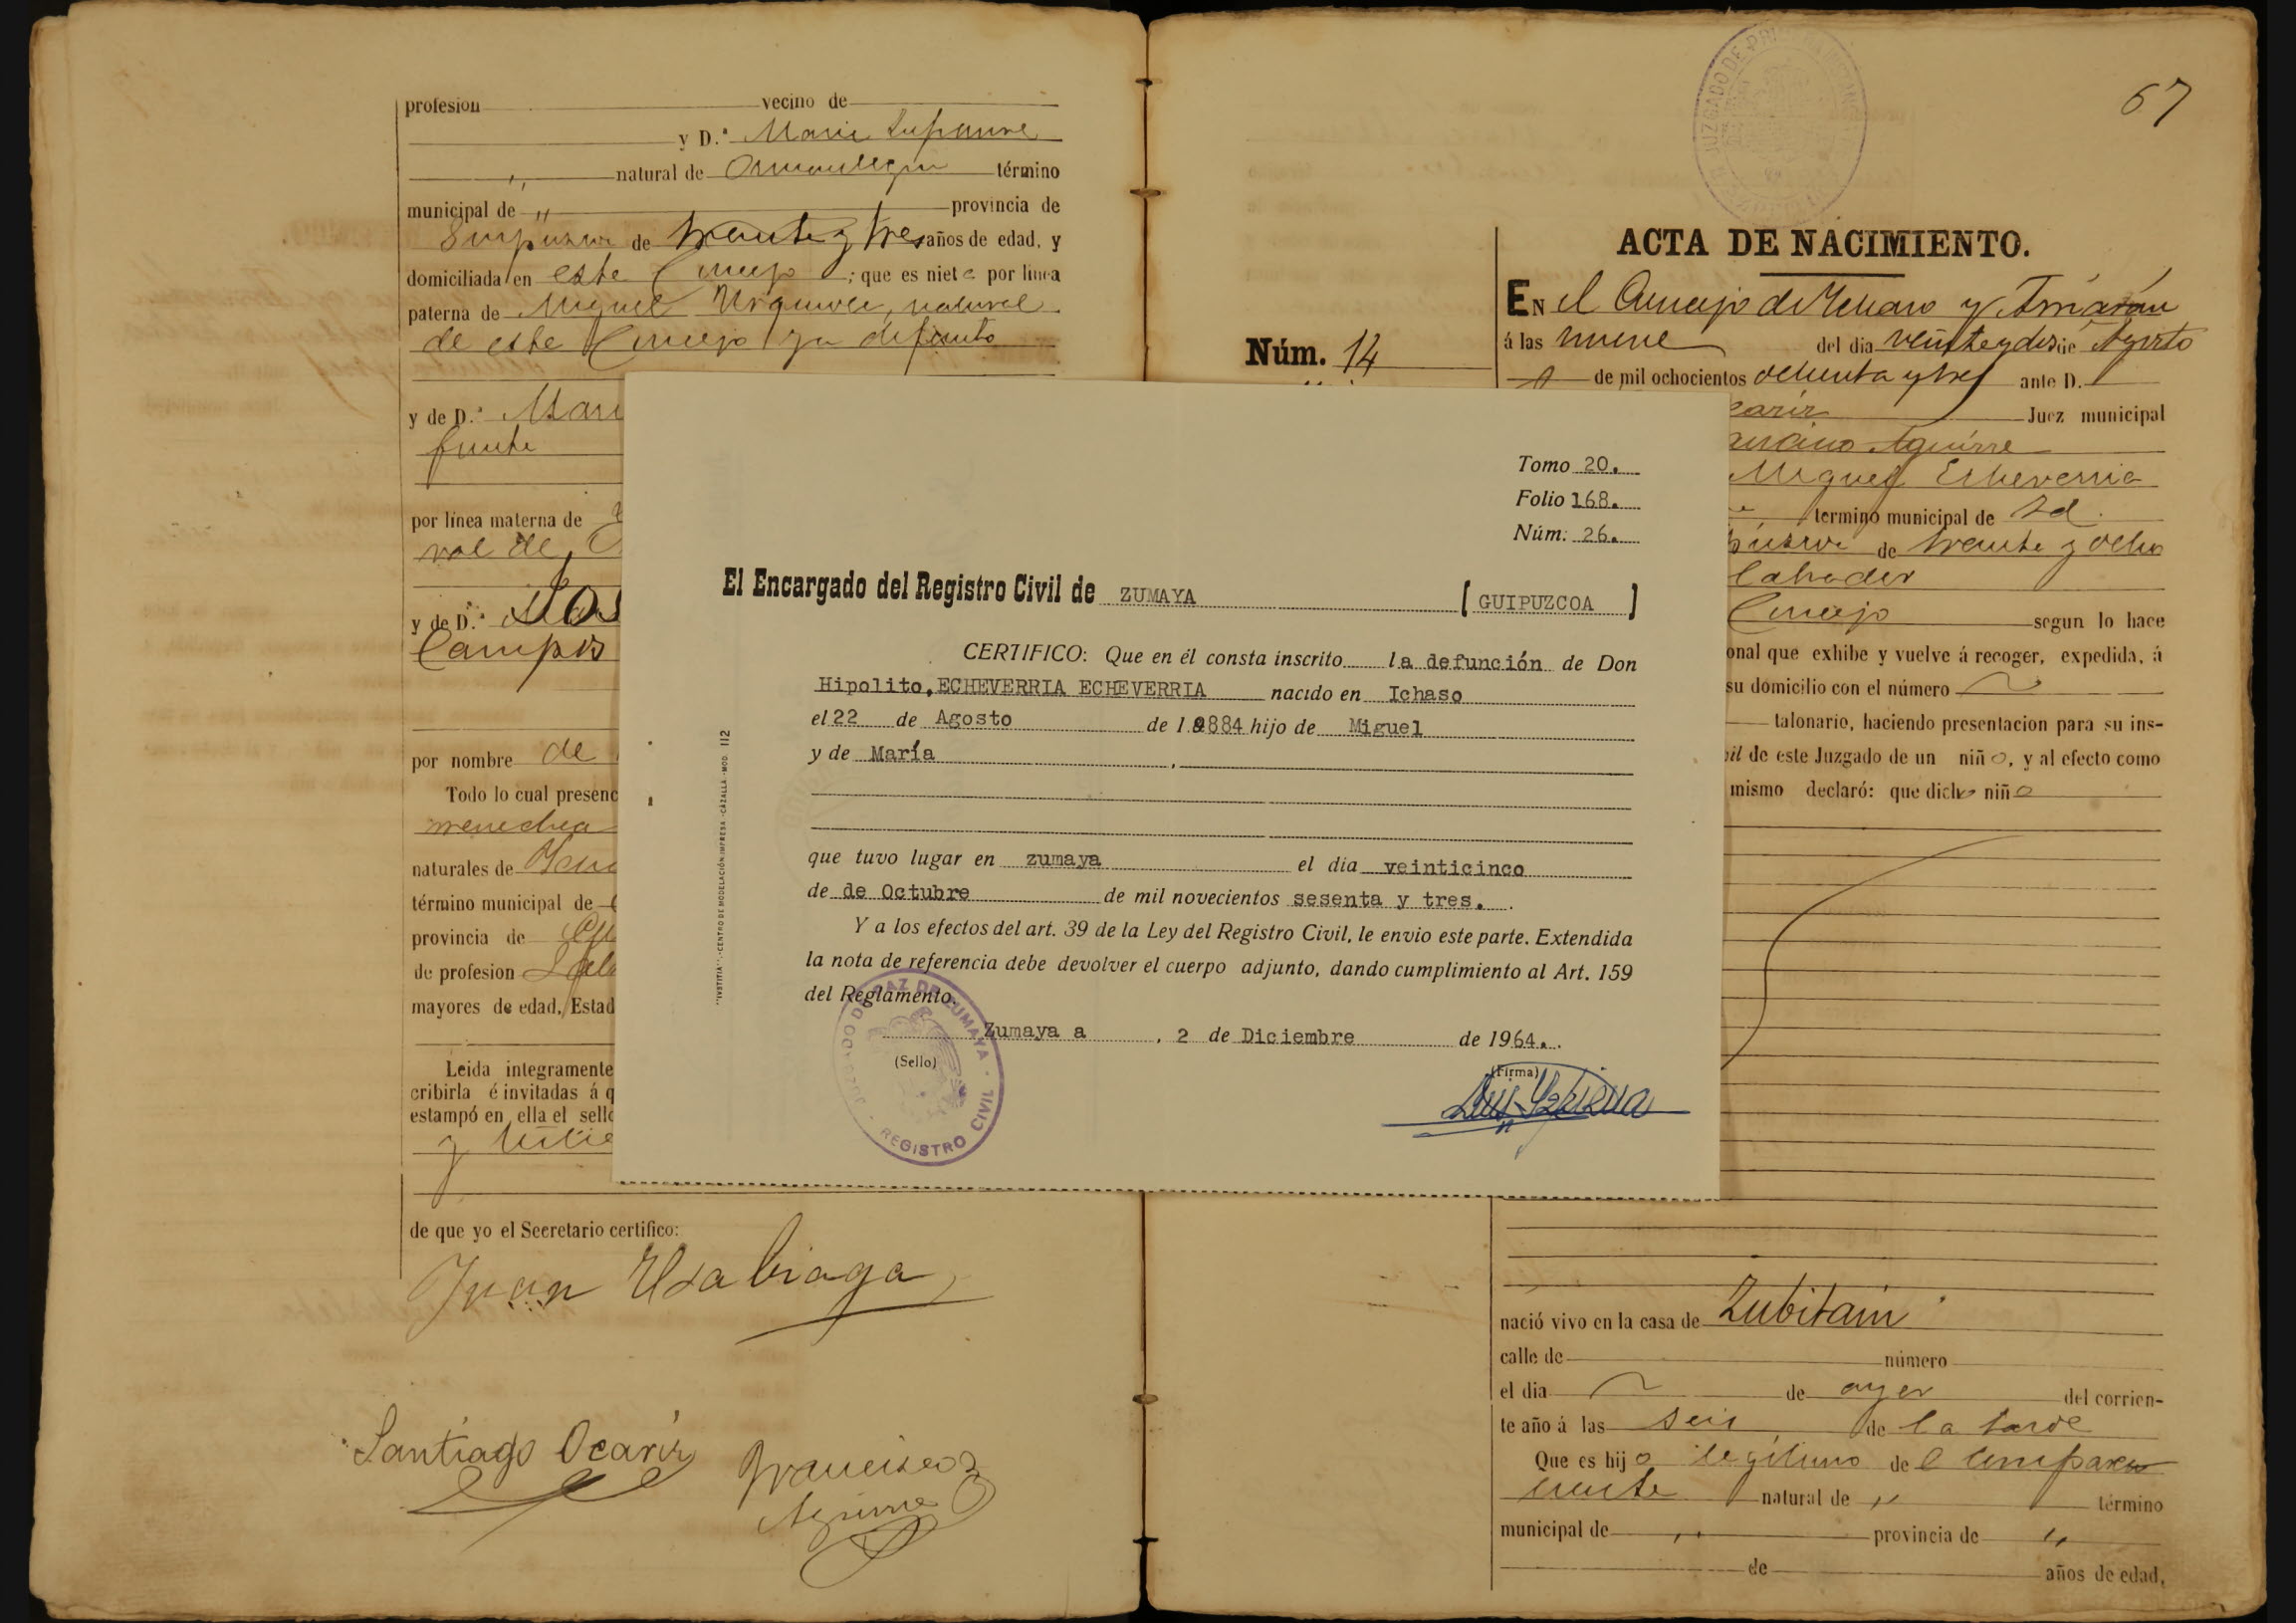 profesion vecino de
y D.ª Maria
natural de término
municipal de " provincia de
de treinta y tres años de edad, y
domiciliada en este Concejo ; que es niet por línea
paterna de Miguel natural
de este Concejo ya difunto
y de D.ª
funte
por línea materna de
y de D.ª
por nombre de
Todo lo cual presenc
naturales de
término municipal de
provincia de
de profesion
mayores de edad, Estad
Leida integramente
cribirla é invitadas á q
estampó en ella el sello
y
de que yo el Secretario certifico:
Juan Usabiaga
Santiago Ocariz
Francisco
Aguirre
Tomo 20.
Folio 168.
Núm. 26.
El Encargado del Registro Civil de ZUMAYA [ GUIPUZCOA ]
CERTIFICO: Que en él consta inscrito la defunción de Don
Hipolito, ECHEVERRIA ECHEVERRIA nacido en Ichaso
el 22 de Agosto de 1.884 hijo de Miguel
y de María
que tuvo lugar en zumaya el día veinticinco
de de Octubre de mil novecientos sesenta y tres.
Y a los efectos del art. 39 de la Ley del Registro Civil, le envio este parte. Extendida
la nota de referencia debe devolver el cuerpo adjunto, dando cumplimiento al Art. 159
del Reglamento.
Zumaya a , 2 de Diciembre de 1964.
(Sello)
(Firma)
JUZGADO DE PAZ DE ZUMAYA - REGISTRO CIVIL
"IVSTITIA".-CENTRO DE MODELACIÓN IMPRESA -CAZALLA -MOD. 112
67
ACTA DE NACIMIENTO.
Núm. 14
EN el Concejo de y
á las nueve del dia veinte y dos de Agosto
de mil ochocientos ochenta y tres ante D.
Juez municipal
Aguirre
Miguel Echeverria
termino municipal de id.
de treinta y ocho
labrador
Concejo segun lo hace
onal que exhibe y vuelve á recoger, expedida, á
su domicilio con el número
talonario, haciendo presentacion para su ins-
vil de este Juzgado de un niño, y al efecto como
mismo declaró: que dicho niño
nació vivo en la casa de Zubitain
calle de número
el dia de ayer del corrien-
te año á las seis de la tarde
Que es hijo legítimo de el compare
ciente natural de " término
municipal de " provincia de "
de años de edad,